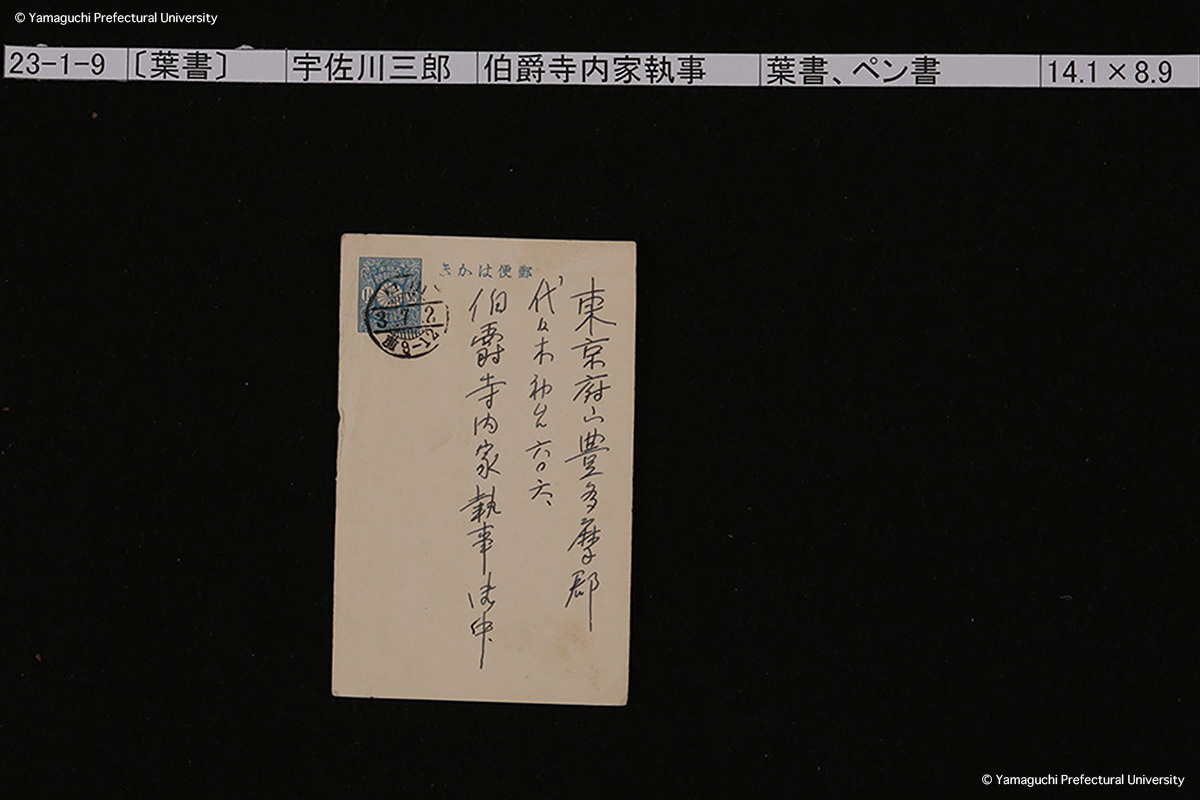 © Yamaguchi Prefectural University
23-1-9 〔葉書〕 宇佐川三郎 伯爵寺内家執事 葉書、ペン書 14.1×8.9
郵便はかき
東京府下豊多摩郡
代々木初台六〇六
伯爵寺内家執事御中
3.7.2
© Yamaguchi Prefectural University